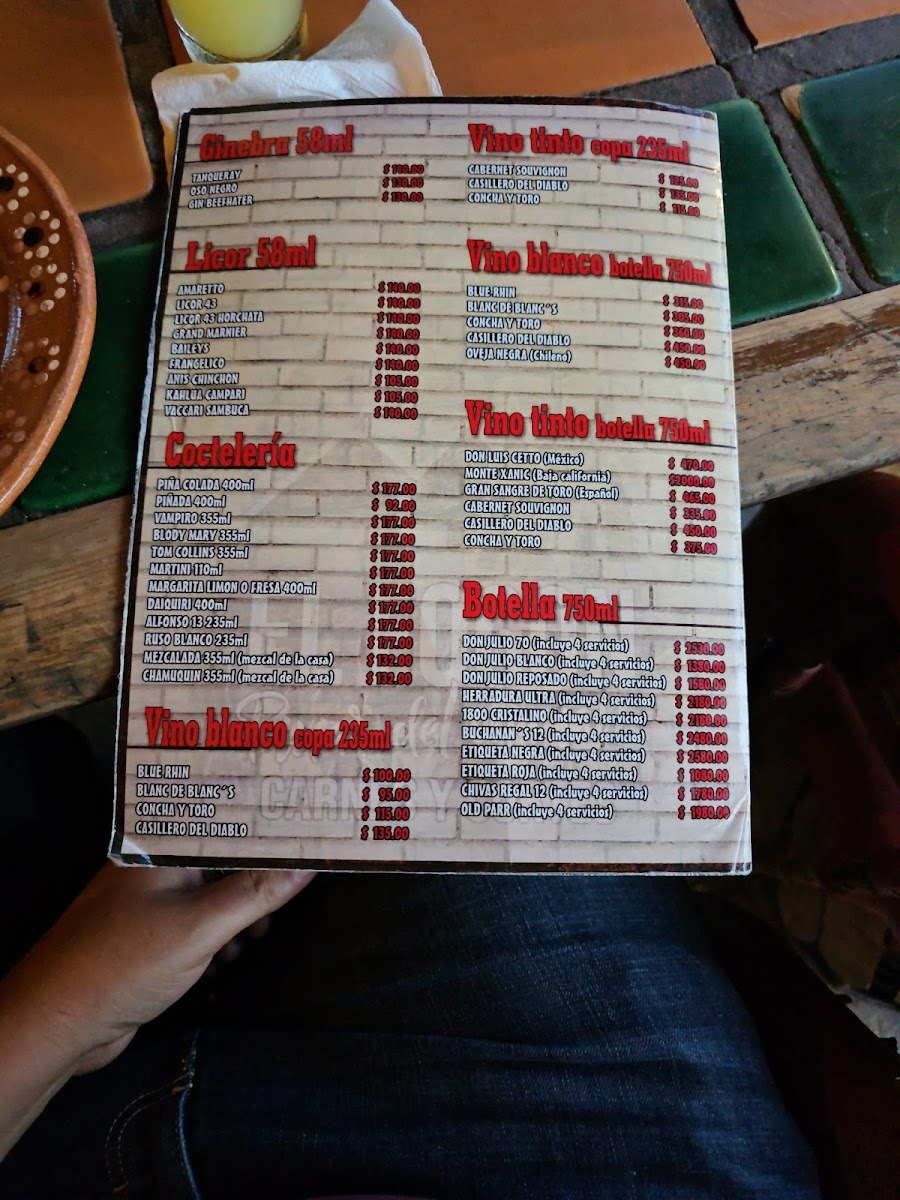 Ginebra 58ml
TANQUERAY $ 140.00
OSO NEGRO $ 130.00
GIN BEEFHATER $ 130.00
Licor 58ml
AMARETTO $ 140.00
LICOR 43 $ 140.00
LICOR 43 HORCHATA $ 140.00
GRAND MARNIER $ 140.00
BAILEYS $ 140.00
FRANGELICO $ 140.00
ANIS CHINCHON $ 105.00
KAHLUA CAMPARI $ 105.00
VACCARI SAMBUCA $ 140.00
Coctelería
PIÑA COLADA 400ml $ 177.00
PIÑADA 400ml $ 92.00
VAMPIRO 355ml $ 177.00
BLODY MARY 355ml $ 177.00
TOM COLLINS 355ml $ 177.00
MARTINI 110ml $ 177.00
MARGARITA LIMON O FRESA 400ml $ 177.00
DAIQUIRI 400ml $ 177.00
ALFONSO 13 235ml $ 177.00
RUSO BLANCO 235ml $ 177.00
MEZCALADA 355ml (mezcal de la casa) $ 132.00
CHAMUQUIN 355ml (mezcal de la casa) $ 132.00
Vino blanco copa 235ml
BLUE RHIN $ 100.00
BLANC DE BLANC´S $ 95.00
CONCHA Y TORO $ 115.00
CASILLERO DEL DIABLO $ 135.00
Vino tinto copa 235ml
CABERNET SOUVIGNON $ 125.00
CASILLERO DEL DIABLO $ 135.00
CONCHA Y TORO $ 115.00
Vino blanco botella 750ml
BLUE RHIN $ 315.00
BLANC DE BLANC´S $ 305.00
CONCHA Y TORO $ 360.00
CASILLERO DEL DIABLO $ 450.00
OVEJA NEGRA (Chileno) $ 450.00
Vino tinto botella 750ml
DON LUIS CETTO (México) $ 470.00
MONTE XANIC (Baja california) $2000.00
GRAN SANGRE DE TORO (Español) $ 465.00
CABERNET SOUVIGNON $ 335.00
CASILLERO DEL DIABLO $ 450.00
CONCHA Y TORO $ 375.00
Botella 750ml
DON JULIO 70 (incluye 4 servicios) $ 2530.00
DON JULIO BLANCO (incluye 4 servicios) $ 1380.00
DON JULIO REPOSADO (incluye 4 servicios) $ 1580.00
HERRADURA ULTRA (incluye 4 servicios) $ 2180.00
1800 CRISTALINO (incluye 4 servicios) $ 2180.00
BUCHANAN´S 12 (incluye 4 servicios) $ 2480.00
ETIQUETA NEGRA (incluye 4 servicios) $ 2580.00
ETIQUETA ROJA (incluye 4 servicios) $ 1080.00
CHIVAS REGAL 12 (incluye 4 servicios) $ 1780.00
OLD PARR (incluye 4 servicios) $ 1980.00